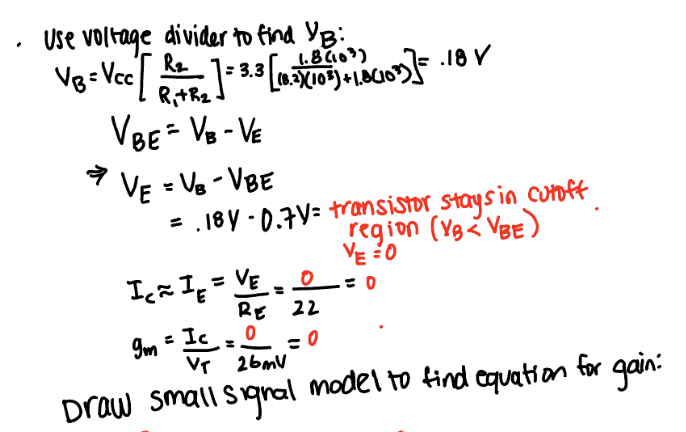 . Use voltage divider to find VB:
VB = Vcc [ R2 / R1+R2 ] = 3.3 [ 1.8(10³) / (8.2)(10³)+1.8(10³) ] = .18 V
VBE = VB - VE
⇒ VE = VB - VBE
= .18V - 0.7V = transistor stays in cutoff
region (VB < VBE)
VE = 0
Ic ≈ IE = VE / RE = 0 / 22 = 0
gm = Ic / VT = 0 / 26mV = 0
Draw small signal model to find equation for gain: